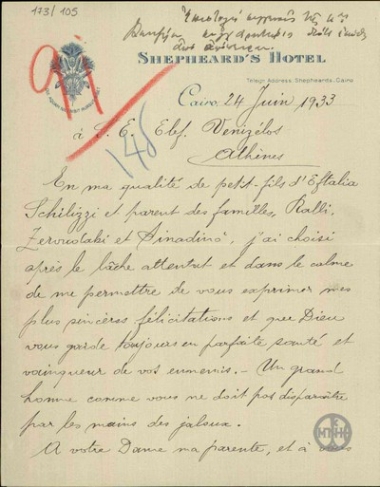 173/105
91
148
SHEPHEARD'S HOTEL
Telegr. Address, Shepheards, Cairo
Cairo, 24 Juin 1933
à S. E. Elef. Venizélos
Athènes
En ma qualité de petit-fils d'Eftalia
Schilizzi et parent des familles, Ralli,
Zervoudaki et Sinadino, j'ai choisi
après le lâche attentat et dans le calme
de me permettre de vous exprimer mes
plus sincères félicitations et que Dieu
vous garde toujours en parfaite santé et
vainqueur de vos ennemis. - Un grand
homme comme vous ne doit pas disparaître
par les mains des jaloux.
A votre Dame ma parente, et à vous